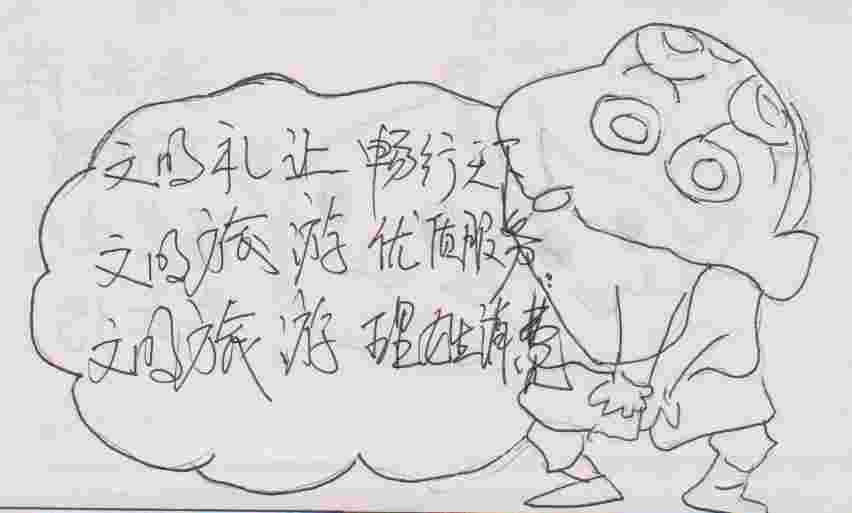 文明礼让 畅行天下
文明旅游 优质服务
文明旅游 理性消费